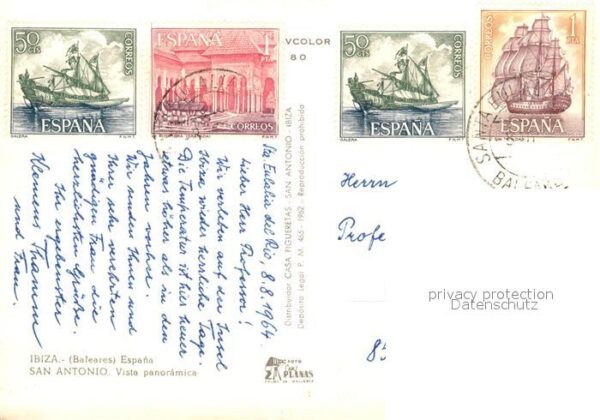 50
CTS
CORREOS
GALERA
F.N.M.T.
ESPAÑA
ESPAÑA
CORREOS
50
CTS
CORREOS
GALERA
F.N.M.T.
ESPAÑA
CORREOS
1
PTA
ESPAÑA
F.N.M.T.
VCOLOR
80
Sta Eulalia del Rio, 8.8.1964
Lieber Herr Professor!
Wir verleben auf der Insel
Ibiza wieder herrliche Tage.
Die Temperatur ist hier heuer
etwas höher als in den
Jahren vorher.
Wir senden Ihnen und
Ihrer sehr verehrten
gnädigen Frau die
herzlichsten Grüße.
Ihr ergebenster
Klemens Thamm
und Frau.
Distribuidor CASA FIGUERETAS - SAN ANTONIO - IBIZA
Depósito Legal P. M. 465 - 1962 - Reproducción prohibida
Herrn
Profe
85
privacy protection
Datenschutz
IBIZA.- (Baleares) España
SAN ANTONIO. Vista panorámica
FOTO
PLANAS
PALMA DE MALLORCA